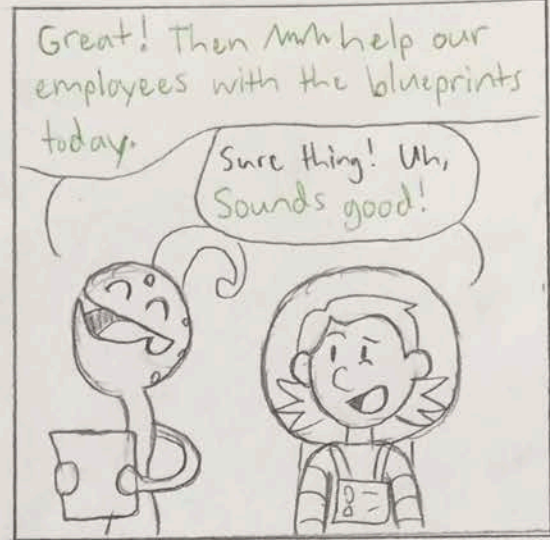 Great! Then help our
employees with the blueprints
today.
Sure thing! Uh,
Sounds good!